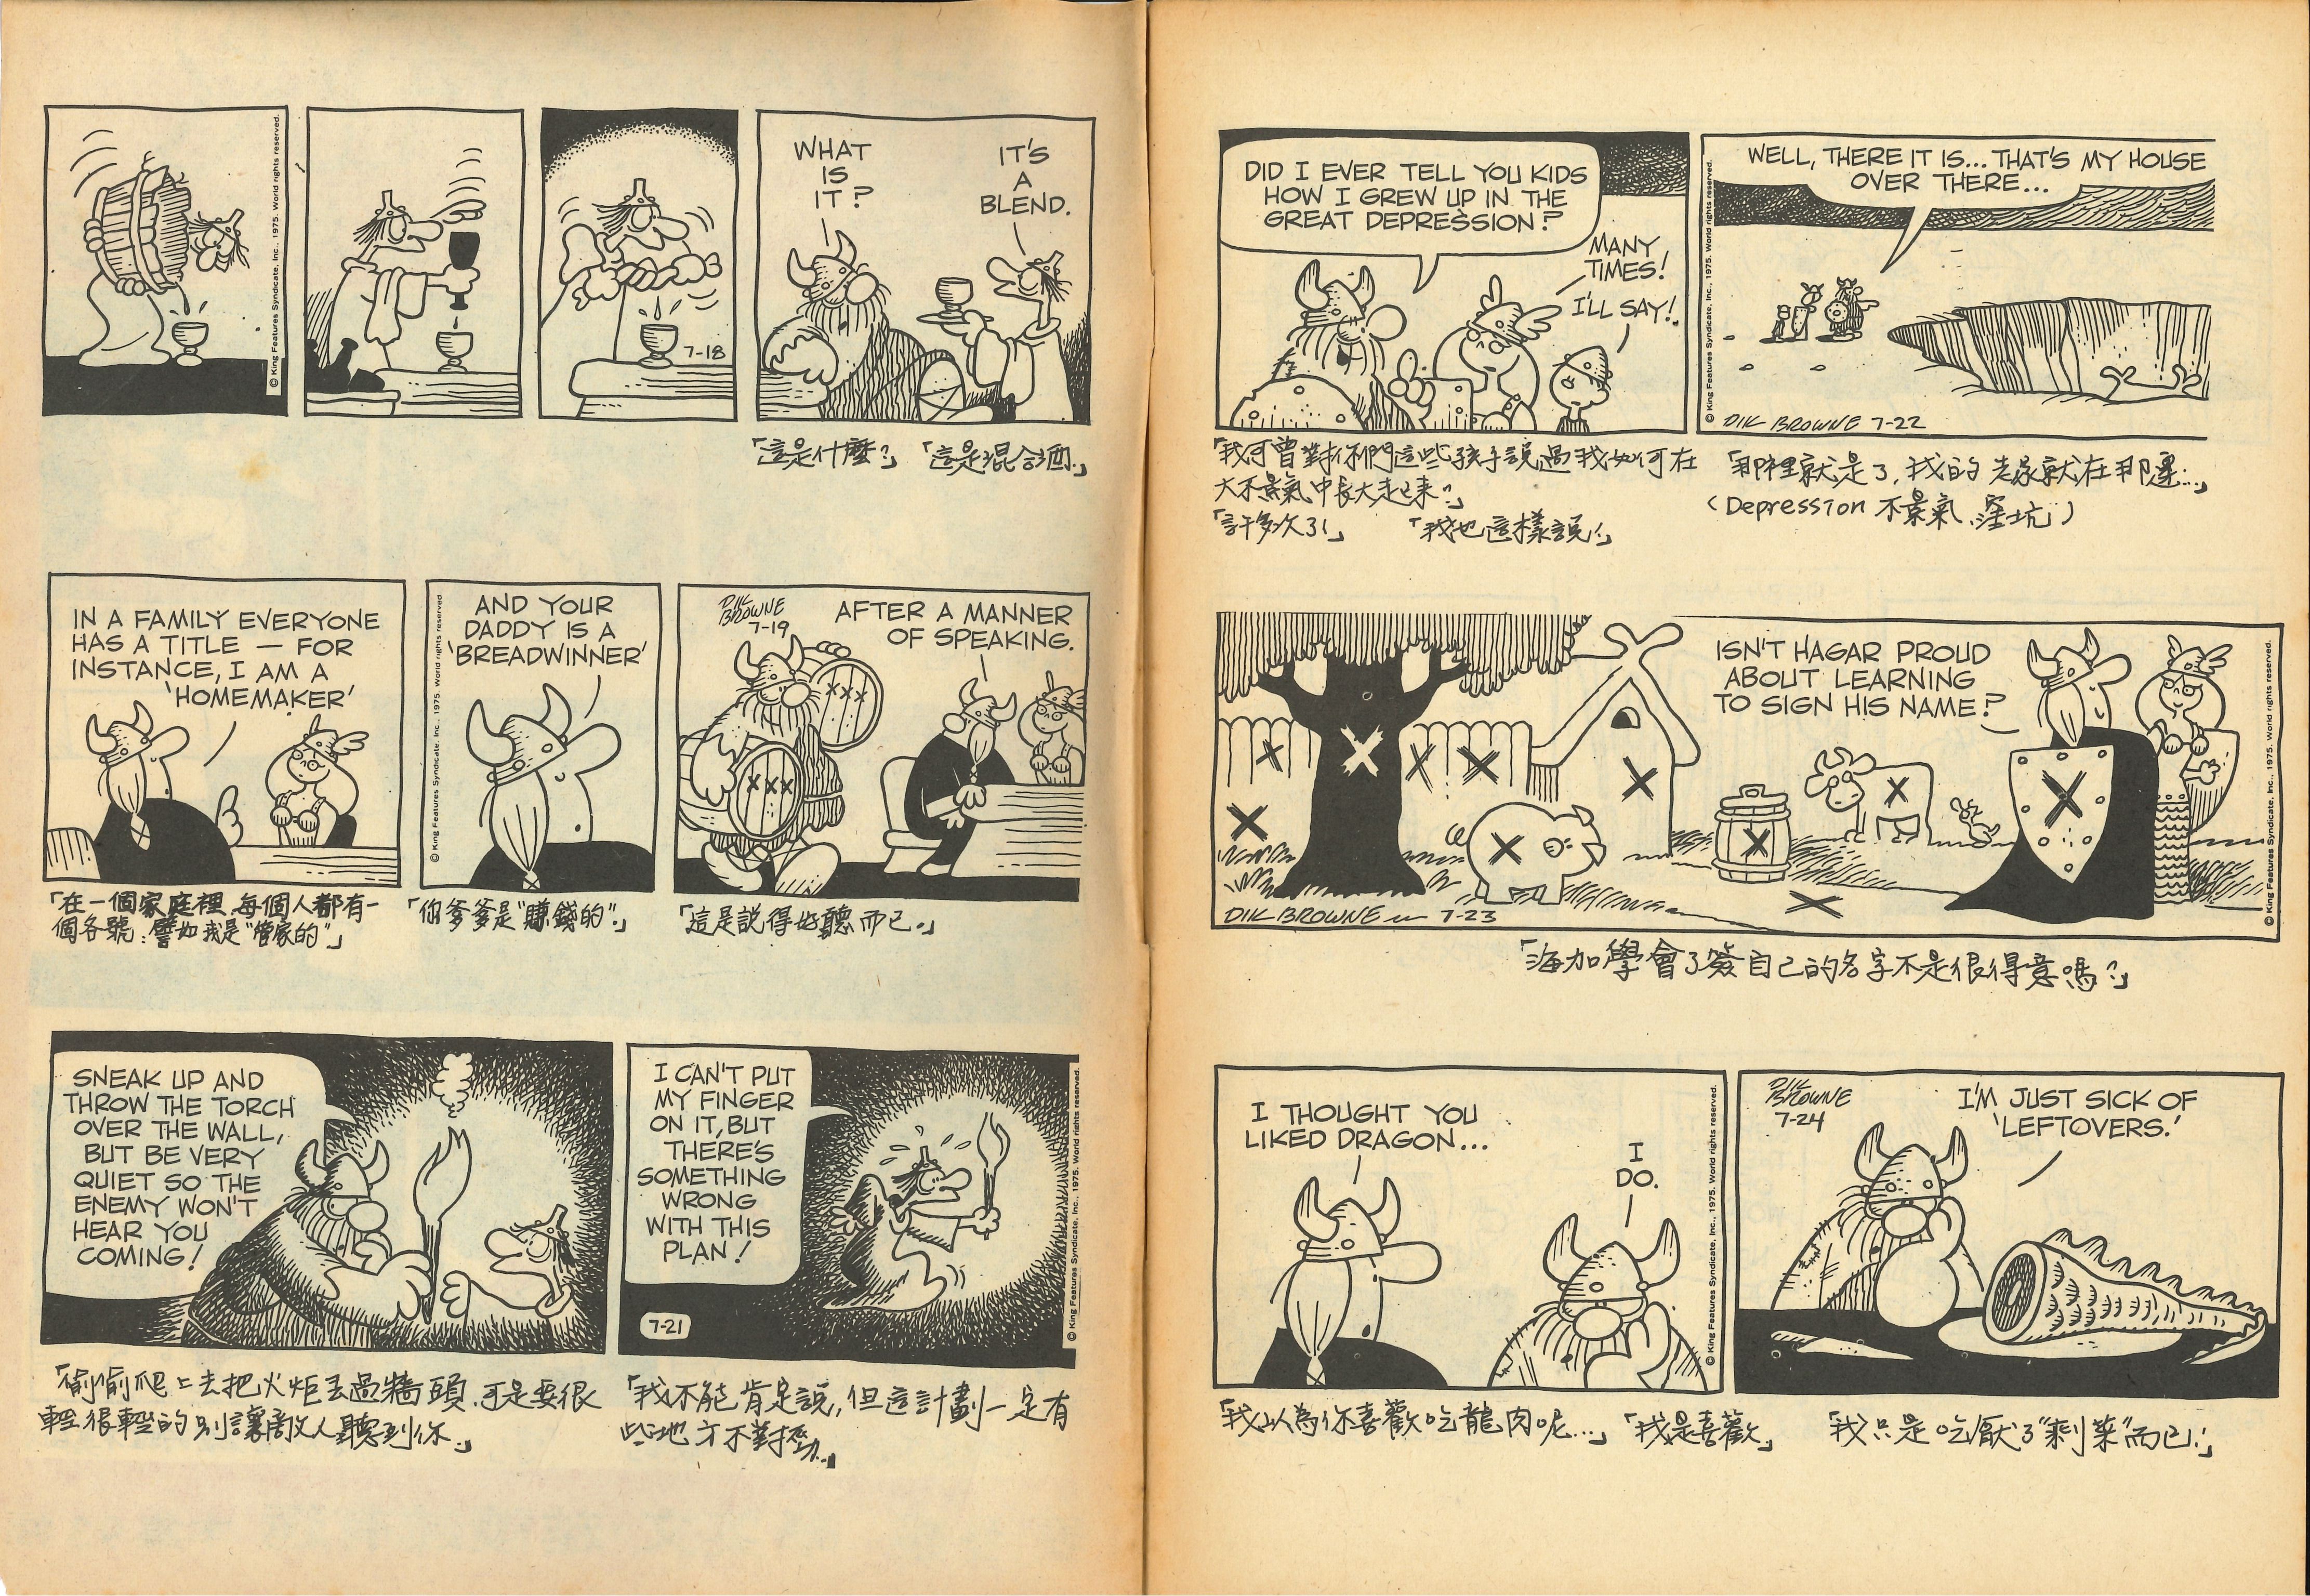 © King Features Syndicate, Inc., 1975. World rights reserved.
7-18
WHAT
IS
IT?
IT'S
A
BLEND.
「這是什麼?」
「這是混合酒.」
IN A FAMILY EVERYONE
HAS A TITLE — FOR
INSTANCE, I AM A
'HOMEMAKER'
© King Features Syndicate, Inc., 1975. World rights reserved
AND YOUR
DADDY IS A
'BREADWINNER'
DIK
BROWNE
7-19
AFTER A MANNER
OF SPEAKING.
XXX
XXX
「在一個家庭裡,每個人都有一
個名號,譬如我是"管家的"」
「你爹爹是"賺錢的".」
「這是説得好聽而已.」
SNEAK UP AND
THROW THE TORCH
OVER THE WALL,
BUT BE VERY
QUIET SO THE
ENEMY WON'T
HEAR YOU
COMING!
I CAN'T PUT
MY FINGER
ON IT, BUT
THERE'S
SOMETHING
WRONG
WITH THIS
PLAN!
7-21
© King Features Syndicate, Inc., 1975. World rights reserved.
「偷偷爬上去把火炬丟過牆頭,可是要很
輕很輕的別讓敵人聽到你.」
「我不能肯定説,但這計劃一定有
些地方不對勁.」
DID I EVER TELL YOU KIDS
HOW I GREW UP IN THE
GREAT DEPRESSION?
MANY
TIMES!
I'LL SAY!
© King Features Syndicate, Inc., 1975. World rights reserved.
WELL, THERE IT IS... THAT'S MY HOUSE
OVER THERE...
DIK BROWNE 7-22
「我可曾對你們這些孩子説過我如何在
大不景氣中長大起來?」
「許多次了!」
「我也這樣説!」
「那裡就是了,我的老家就在那邊...」
(Depression 不景氣、窪坑)
ISN'T HAGAR PROUD
ABOUT LEARNING
TO SIGN HIS NAME?
X
X
X
X
X
X
X
X
X
X
X
DIK BROWNE 7-23
© King Features Syndicate, Inc., 1975. World rights reserved.
「海加學會了簽自己的名字不是很得意嗎?」
I THOUGHT YOU
LIKED DRAGON...
I
DO.
© King Features Syndicate, Inc., 1975. World rights reserved.
DIK
BROWNE
7-24
I'M JUST SICK OF
'LEFTOVERS.'
「我以為你喜歡吃龍肉呢...」
「我是喜歡」
「我只是吃厭了"剩菜"而已!」